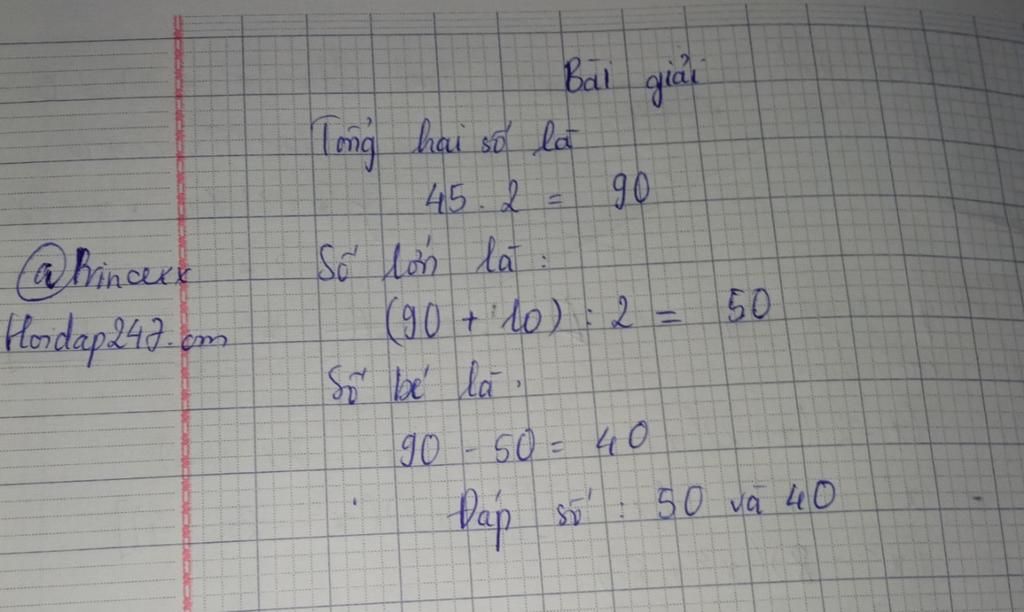 Bài giải
Tổng hai số là
45 . 2 = 90
Số lớn là :
(90 + 10) : 2 = 50
Số bé là .
90 - 50 = 40
Đáp số : 50 và 40
@Princexx
Hoidap247.com